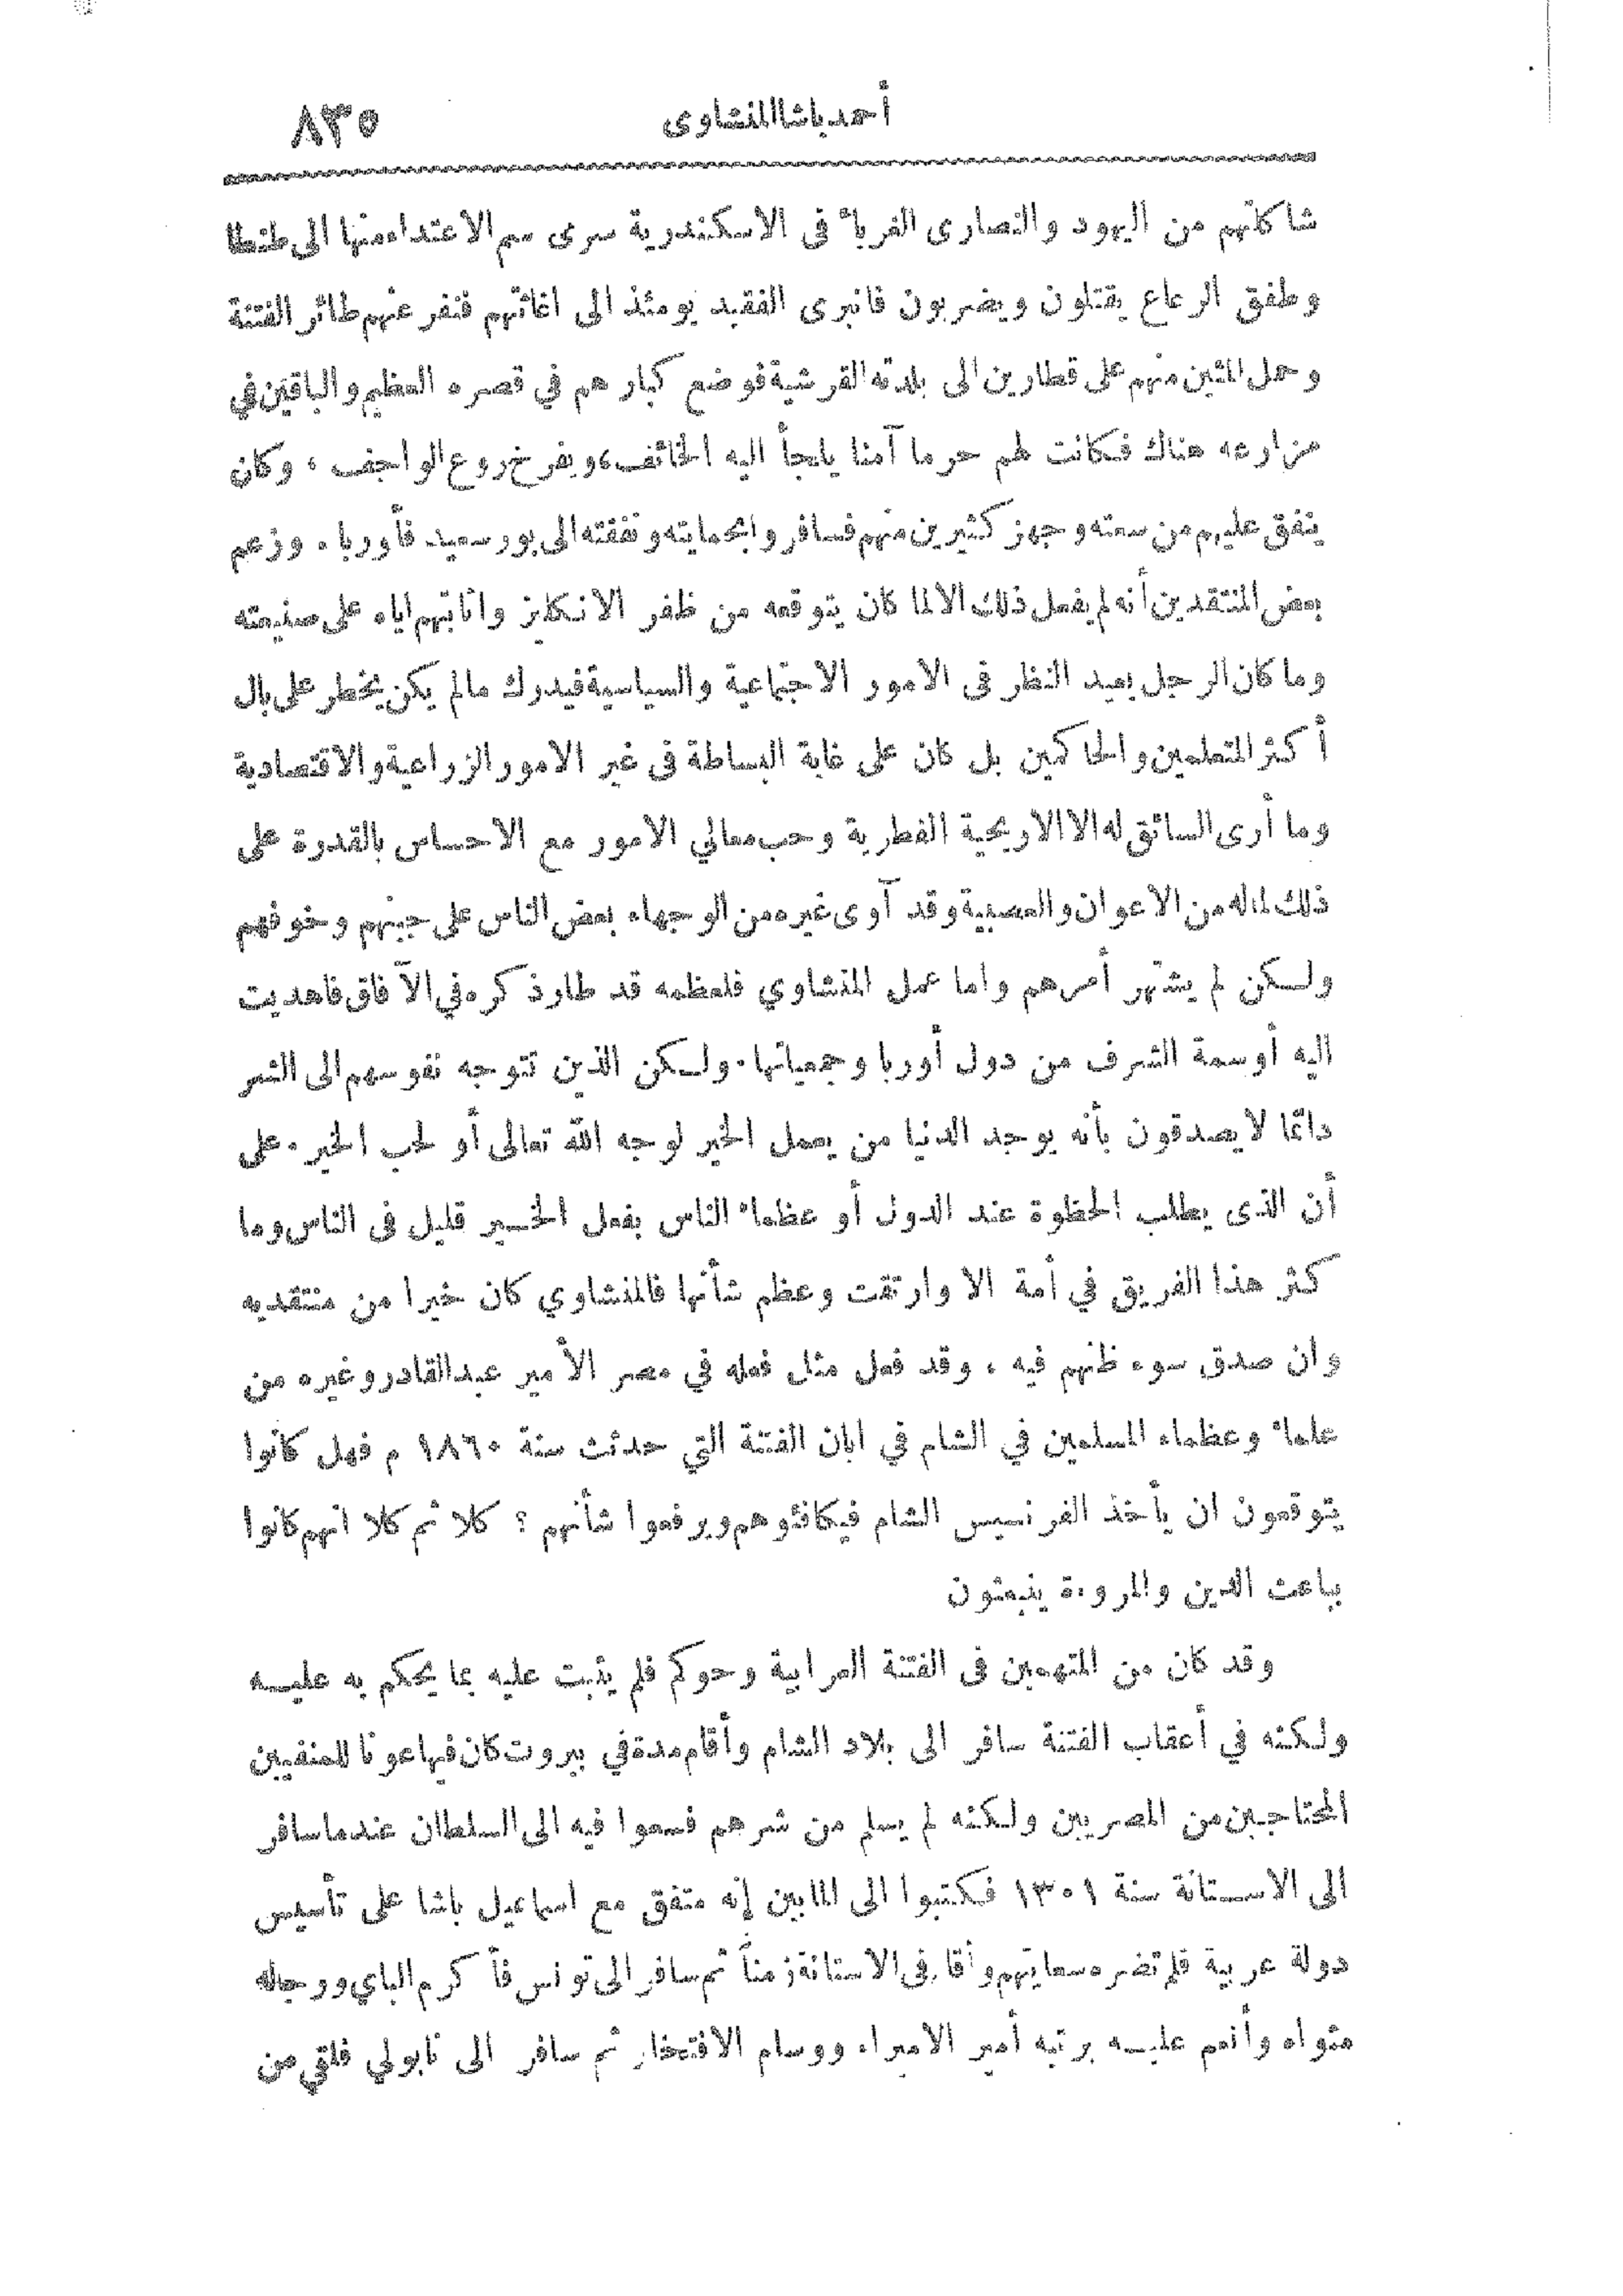 أحمد باشا المنشاوى ٨٣٥
شاكلتهم من اليهود والنصارى الغرباء فى الاسكندرية سرى سم الاعتداء منها الى طنطا
وطفق الرعاع يقتلون ويضربون فانبرى الفقيد يومئذ الى اغاثتهم فنفر عنهم طائر الفتنة
وحمل المئين منهم على قطارين الى بلدته القرشية فوضع كبارهم في قصره العظيم والباقين في
مزارعه هناك فكانت لهم حرما آمنا يلجأ اليه الخائف، ويفرخ روع الواجف ، وكان
ينفق عليهم من سعته وجهز كثيرين منهم فسافروا بحمايته ونفقته الى بور سعيد فأوربا . وزعم
بعض المنتقدين أنه لم يفعل ذلك الا لما كان يتوقعه من ظفر الانكليز واثابتهم اياه على صنيعته
وما كان الرجل بعيد النظر فى الامور الاجتماعية والسياسية فيدرك مالم يكن يخطر على بال
أكثر المتعلمين والحاكمين بل كان على غاية البساطة فى غير الامور الزراعية والاقتصادية
وما أرى السائق له الا الاريحية الفطرية وحب معالي الامور مع الاحساس بالقدرة على
ذلك لما له من الاعوان والعصبية وقد آوى غيره من الوجهاء بعض الناس على جبنهم وخوفهم
ولكن لم يشتهر أمرهم واما عمل المنشاوي فلعظمه قد طار ذكره في الآفاق فاهديت
اليه أوسمة الشرف من دول أوربا وجمعياتها . ولكن الذين تتوجه نفوسهم الى الشر
دائما لا يصدقون بأنه يوجد الدنيا من يعمل الخير لوجه الله تعالى أو لحب الخير . على
أن الذى يطلب الحظوة عند الدول أو عظماء الناس بفعل الخير قليل فى الناس وما
كثر هذا الفريق في أمة الا وارتقت وعظم شأنها فالمنشاوي كان خيرا من منتقديه
وان صدق سوء ظنهم فيه ، وقد فعل مثل فعله في مصر الأمير عبد القادر وغيره من
علماء وعظماء المسلمين في الشام في ابان الفتنة التي حدثت سنة ١٨٦٠ م فهل كانوا
يتوقعون ان يأخذ الفرنسيس الشام فيكافئوهم ويرفعوا شأنهم ؟ كلا ثم كلا انهم كانوا
بباعث الدين والمروءة ينبعثون
وقد كان من المتهمين فى الفتنة العرابية وحوكم فلم يثبت عليه بما يحكم به عليه
ولكنه في أعقاب الفتنة سافر الى بلاد الشام وأقام مدة في بيروت كان فيها عونا للمنفيين
المحتاجين من المصريين ولكنه لم يسلم من شرهم فسعوا فيه الى السلطان عندما سافر
الى الاستانة سنة ١٣٠١ فكتبوا الى المابين إنه متفق مع اسماعيل باشا على تأسيس
دولة عربية فلم تضره سعايتهم وأقام فى الاستانة زمناً ثم سافر الى تونس فأكرم الباي ورجاله
مثواه وأنعم عليه برتبه أمير الامراء ووسام الافتخار ثم سافر الى نابولي فلقي من